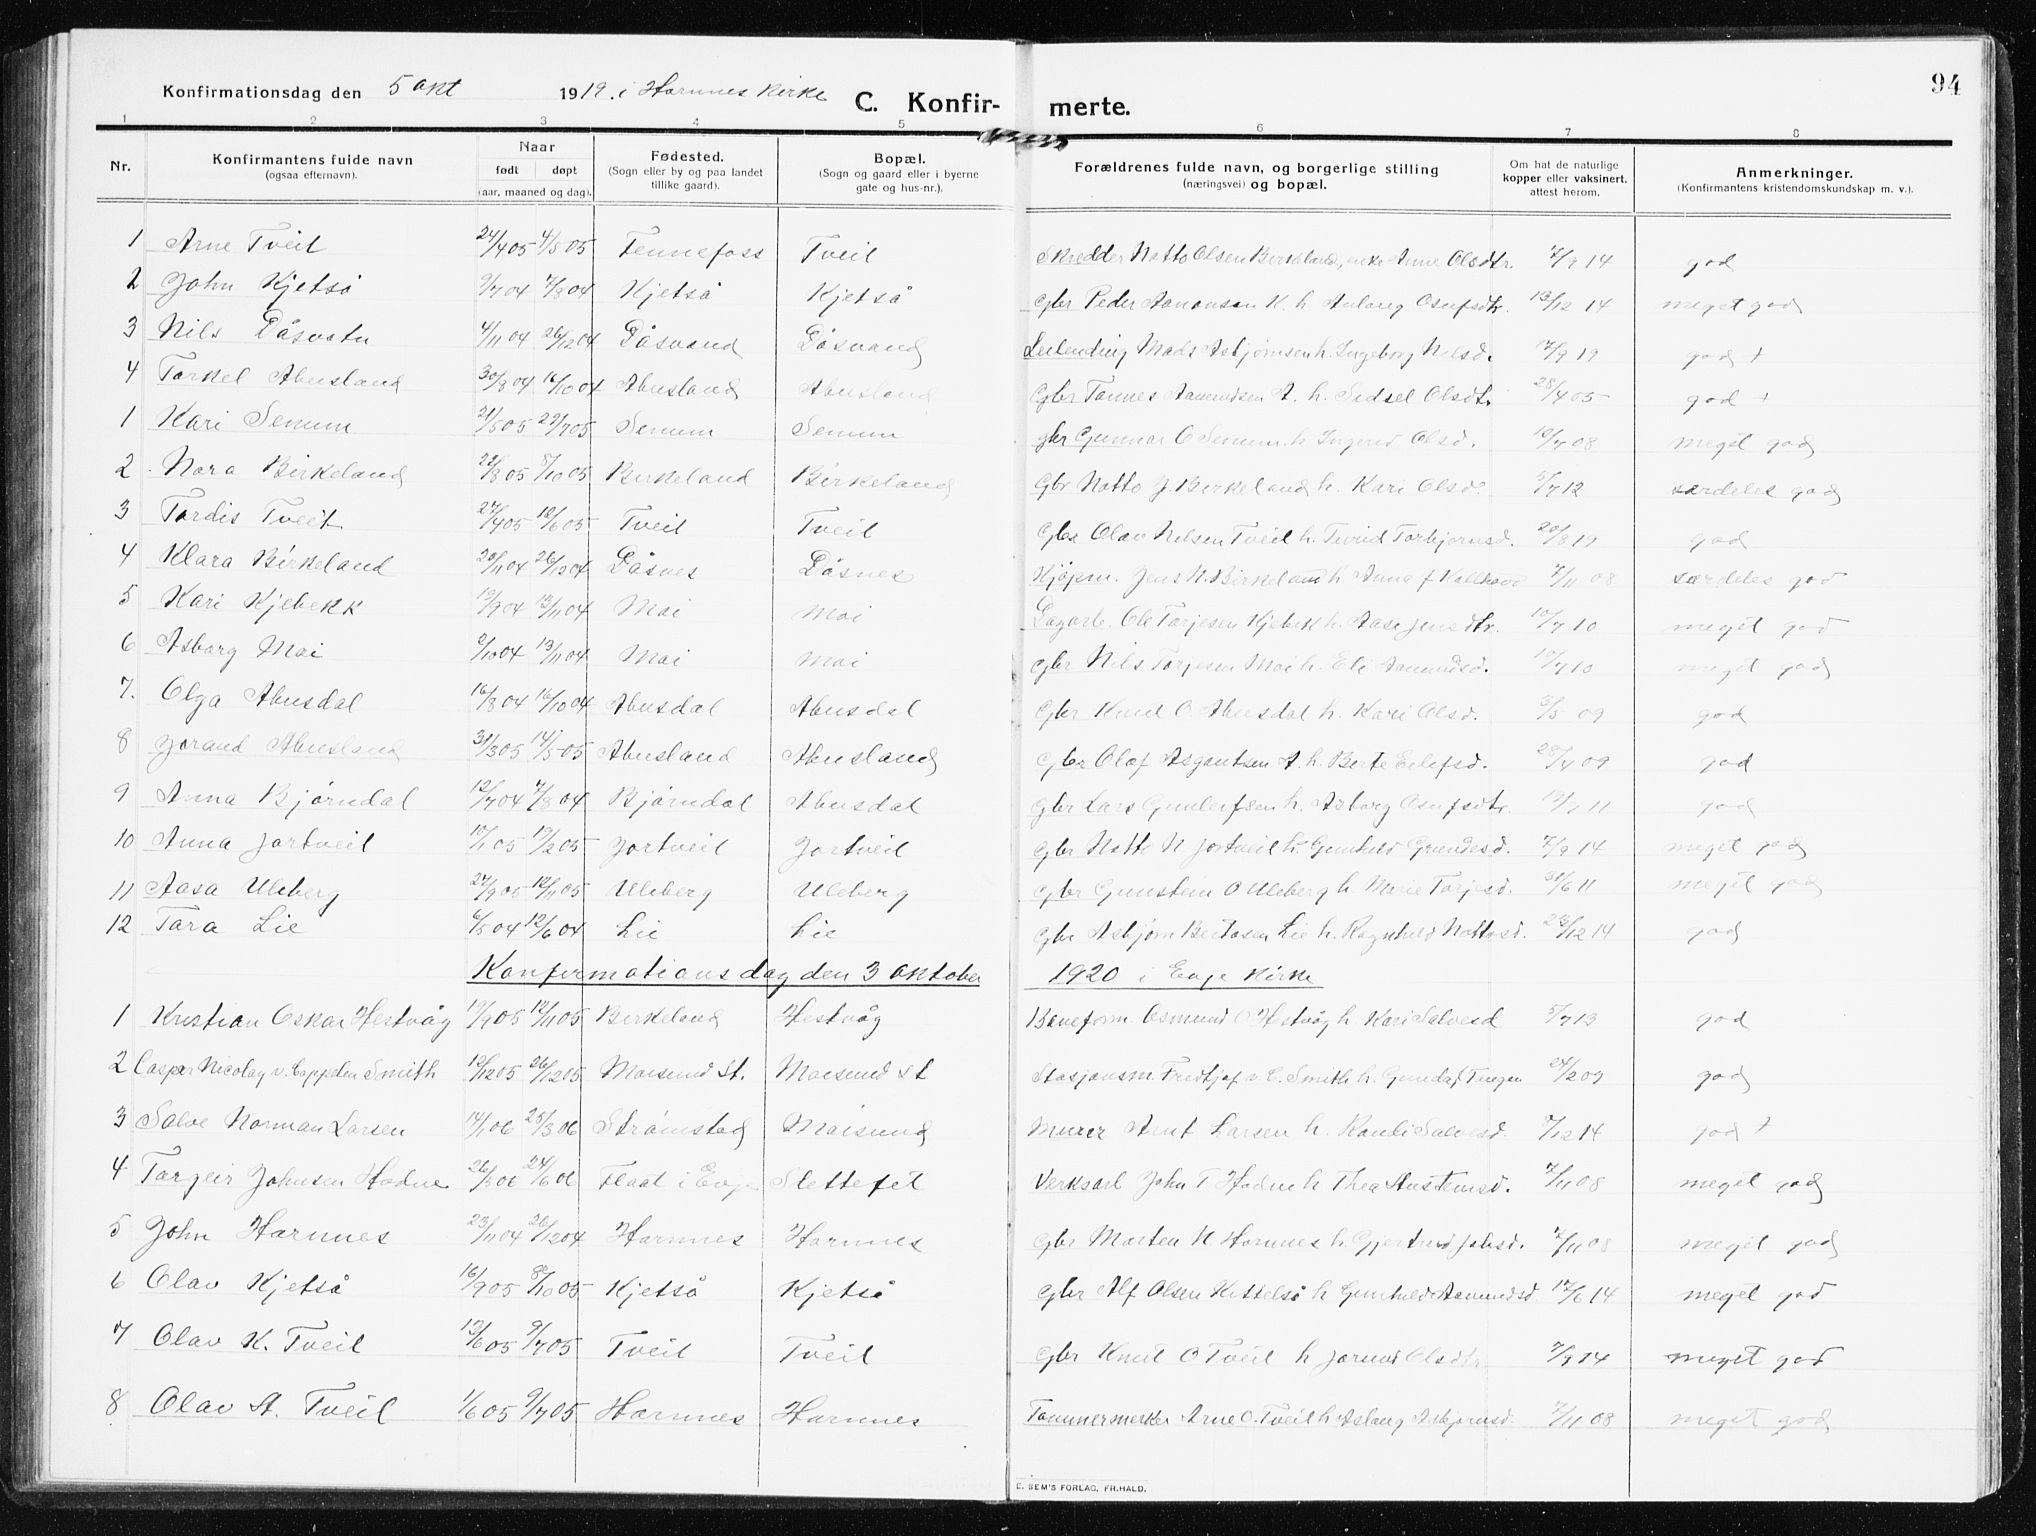 94
Konfirmationsdag den 5 okt 1919. i Hornnes Kirke C. Konfir- merte.
1 2 3 4 5 6 7 8
Nr. Konfirmantens fulde navn (ogsaa efternavn). Naar født døpt (aar, maaned og dag). Fødested. (Sogn eller by og paa landet tillike gaard). Bopæl. (Sogn og gaard eller i byerne gate og hus-nr.). Forældrenes fulde navn, og borgerlige stilling (næringsvei) og bopæl. Om hat de naturlige kopper eller vaksinert, attest herom. Anmerkninger. (Konfirmantens kristendomskundskap m. v.).
1 Arne Tveit 24/4 05 4/5 05 Fennefoss Tveit Skredder Notto Olsen Birkeland, enke Anne Olsdtr. 7/9 14 god
2 John Kjetså 9/7 04 7/8 04 Kjetså Kjetså Gbr Peder Aanonsen K. h. Anlaug Osufsdtr. 13/12 14 meget god
3 Nils Dåsvatn 4/11 04 26/12 04 Dåsvand Dåsvand Leilending Mads Asbjørnsen h. Ingeborg Nilsd. 17/9 19 god +
4 Torkel Abusland 30/8 04 16/10 04 Abusland Abusland Gbr Tønnes Aanundsen A. h. Sidsel Olsdtr. 28/4 05 god +
1 Kari Senum 21/5 05 29/7 05 Senum Senum gbr Gunnar O Senum h Ingerid Olsd. 10/7 08 meget god
2 Nora Birkeland 22/8 05 8/10 05 Birkeland Birkeland Gbr Notto J. Birkeland h. Kari Olsd. 5/7 12 særdeles god
3 Tordis Tveit 27/4 05 12/6 05 Tveit Tveit Gbr Olav Nilsen Tveit h. Turid Torbjørnsd. 20/8 19 god
4 Klara Birkeland 20/11 04 26/12 04 Dåsnes Dåsnes Kjøpm. Jens N. Birkeland h. Anna f Kallhovd 7/11 08 særdeles god
5 Kari Kjebekk 19/9 04 13/11 04 Moi Moi Dagarb. Ole Torjesen Kjebekk h. Aase Jensdtr. 10/7 10 meget god
6 Asborg Moi 2/10 04 13/11 04 Moi Moi gbr Nils Torjesen Moi h. Eli Aanundsd. 10/7 10 meget god
7. Olga Abusdal 16/8 04 16/10 04 Abusdal Abusdal Gbr Knut O. Abusdal h. Kari Olsd. 3/5 09 god
8 Jorand Abusland 31/3 05 14/5 05 Abusland Abusland Gbr Olaf Asgautsen A. h. Berte Eilefsd. 28/4 09 god
9 Anna Bjørndal 12/7 04 7/8 04 Bjørndal Abusdal gbr Lars Gunleifsen h. Asborg Osufsdtr. 13/7 11 god
10 Anna Jortveit 10/1 05 19/2 05 Jortveit Jortveit Gbr Notto N Jortveit h. Gunhild Grundesd. 7/9 14 meget god
11 Aasa Uleberg 27/9 05 12/11 05 Uleberg Uleberg Gbr Gunstein O Uleberg h Marie Torjesd. 31/6 11 meget god
12 Tora Lie 6/5 04 12/6 04 Lie Lie Gbr Asbjørn Bertosen Lie h. Ragnhild Nottosd. 23/12 14 god
Konfirmationsdag den 3 oktober 1920 i Evje Kirke
1 Kristian Oskar Hestvåg 19/9 05 12/11 05 Birkeland Hestvåg Baneform. Osmund O Hestvåg h Kari Salvesd 5/7 13 god
2 Casper Nicolay v. Cappelen Smith 10/12 05 26/12 05 Moisund St. Moisund St Stasjonsm. Fredtjof v. C. Smith h. Gunda f. Tangen 24/2 09 god
3 Salve Norman Larsen 14/1 06 25/3 06 Strømstad Moisund Murer Arnt Larsen h. Randi Salvesd. 7/12 14 god +
4 Torgeir Johnsen Hodne 26/5 06 24/6 06 Flaat i Evje Slettefet Verksarb John T Hodne h Thea Austensd. 7/11 08 meget god
5 John Hornnes 23/11 04 26/12 04 Hornnes Hornnes Gbr Morten N Hornnes h. Gjertrud Johsd. 7/11 08 meget god
6 Olav Kjetså 16/9 05 8/10 05 Kjetså Kjetså Gbr Alf Olsen Kittelså h Gunhild Aanundsd 17/6 14 meget god
7 Olav K. Tveit 13/6 05 9/7 05 Tveit Tveit Gbr Knut O Tveit h Jorand Olsdtr. 7/9 14 meget god
8 Olav A. Tveit 1/6 05 9/7 05 Hornnes Hornnes Tømmermerker Arne O. Tveit h Aslaug Asbjørnsd. 7/11 08 meget god
E. SEM'S FORLAG, FR.HALD.